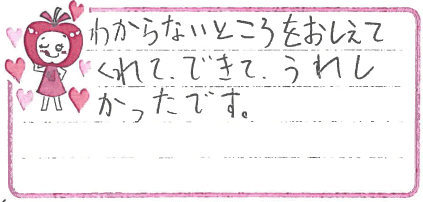 わからないところをおしえて
くれて、できて、うれし
かったです。